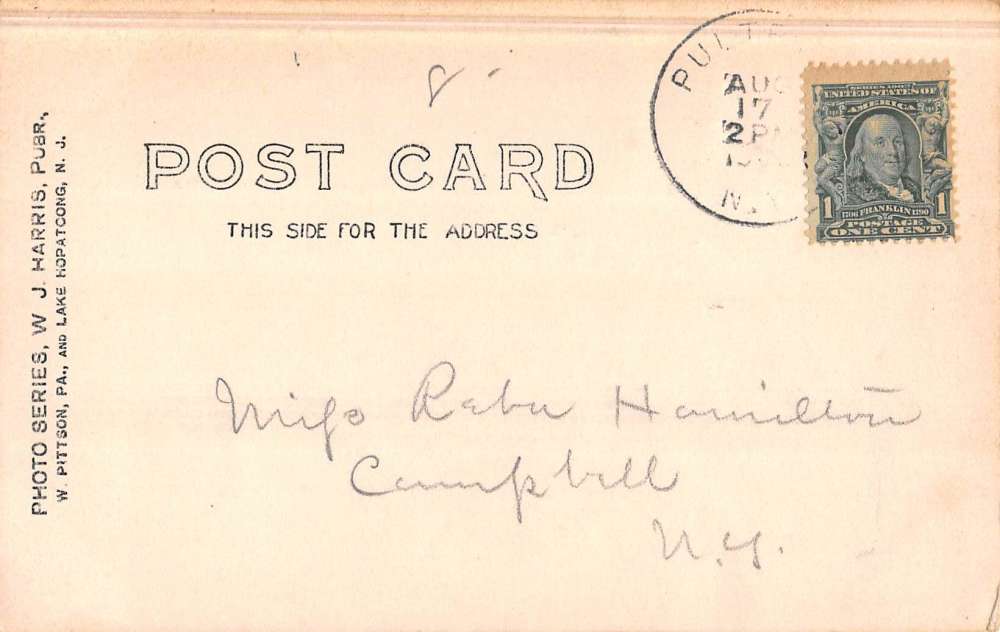 POST CARD
THIS SIDE FOR THE ADDRESS
PHOTO SERIES, W. J. HARRIS, PUBR.,
W. PITTSON, PA., AND LAKE HOPATCONG, N. J.
AUG
17
2 PM
N.Y.
SERIES 1902
UNITED STATES OF
AMERICA
1 1
1706 FRANKLIN 1790
POSTAGE
ONE CENT
Miss Reba Hamilton
Campbell
N.Y.